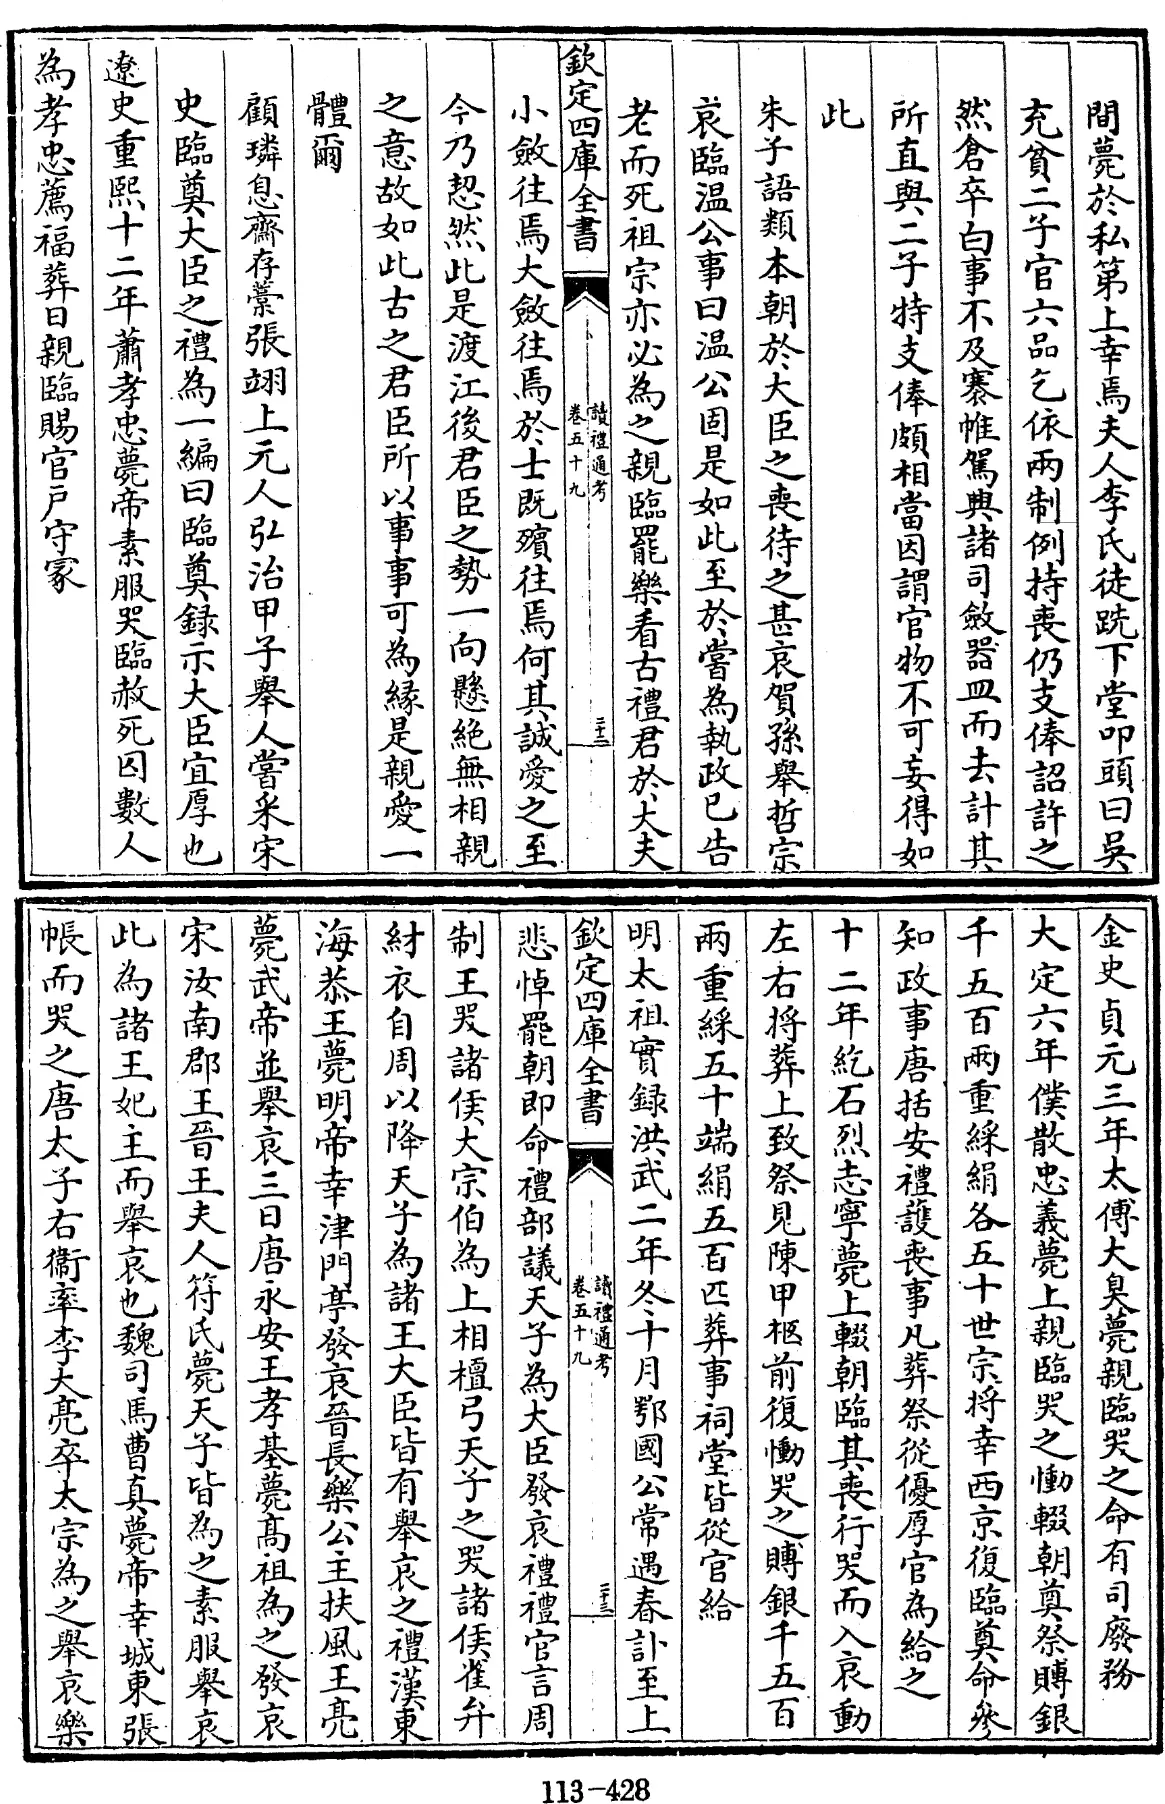 間薨於私第上幸焉夫人李氏徒跣下堂叩頭曰吳
充貧二子官六品乞依兩制例持喪仍支俸詔許之
然倉卒白事不及褰帷駕興諸司斂器皿而去計其
所直與二子特支俸頗相當因謂官物不可妄得如
此
朱子語類本朝於大臣之喪待之甚哀賀孫舉哲宗
哀臨温公事曰温公固是如此至於嘗為執政已告
老而死祖宗亦必為之親臨罷樂看古禮君於大夫
欽定四庫全書
讀禮通考
卷五十九
二十二
小斂往焉大斂往焉於士既殯往焉何其誠愛之至
今乃恝然此是渡江後君臣之勢一向懸絶無相親
之意故如此古之君臣所以事事可為緣是親愛一
體爾
顧璘息齋存藁張翊上元人弘治甲子舉人嘗采宋
史臨奠大臣之禮為一編曰臨奠録示大臣宜厚也
遼史重熙十二年蕭孝忠薨帝素服哭臨赦死囚數人
為孝忠薦福葬日親臨賜官戸守冢
金史貞元三年太傅大㚖薨親臨哭之命有司廢務
大定六年僕散忠義薨上親臨哭之慟輟朝奠祭賻銀
千五百兩重綵絹各五十世宗將幸西京復臨奠命參
知政事唐括安禮護喪事凡葬祭從優厚官為給之
十二年紇石烈志寧薨上輟朝臨其喪行哭而入哀動
左右將葬上致祭見陳甲柩前復慟哭之賻銀千五百
兩重綵五十端絹五百匹葬事祠堂皆從官給
明太祖實録洪武二年冬十月鄂國公常遇春訃至上
欽定四庫全書
讀禮通考
卷五十九
二十三
悲悼罷朝即命禮部議天子為大臣發哀禮禮官言周
制王哭諸侯大宗伯為上相檀弓天子之哭諸侯雀弁
紂衣自周以降天子為諸王大臣皆有舉哀之禮漢東
海恭王薨明帝幸津門亭發哀晉長樂公主扶風王亮
薨武帝並舉哀三日唐永安王孝基薨髙祖為之發哀
宋汝南郡王晉王夫人符氏薨天子皆為之素服舉哀
此為諸王妃主而舉哀也魏司馬曹真薨帝幸城東張
帳而哭之唐太子右衞率李大亮卒太宗為之舉哀樂
113-428